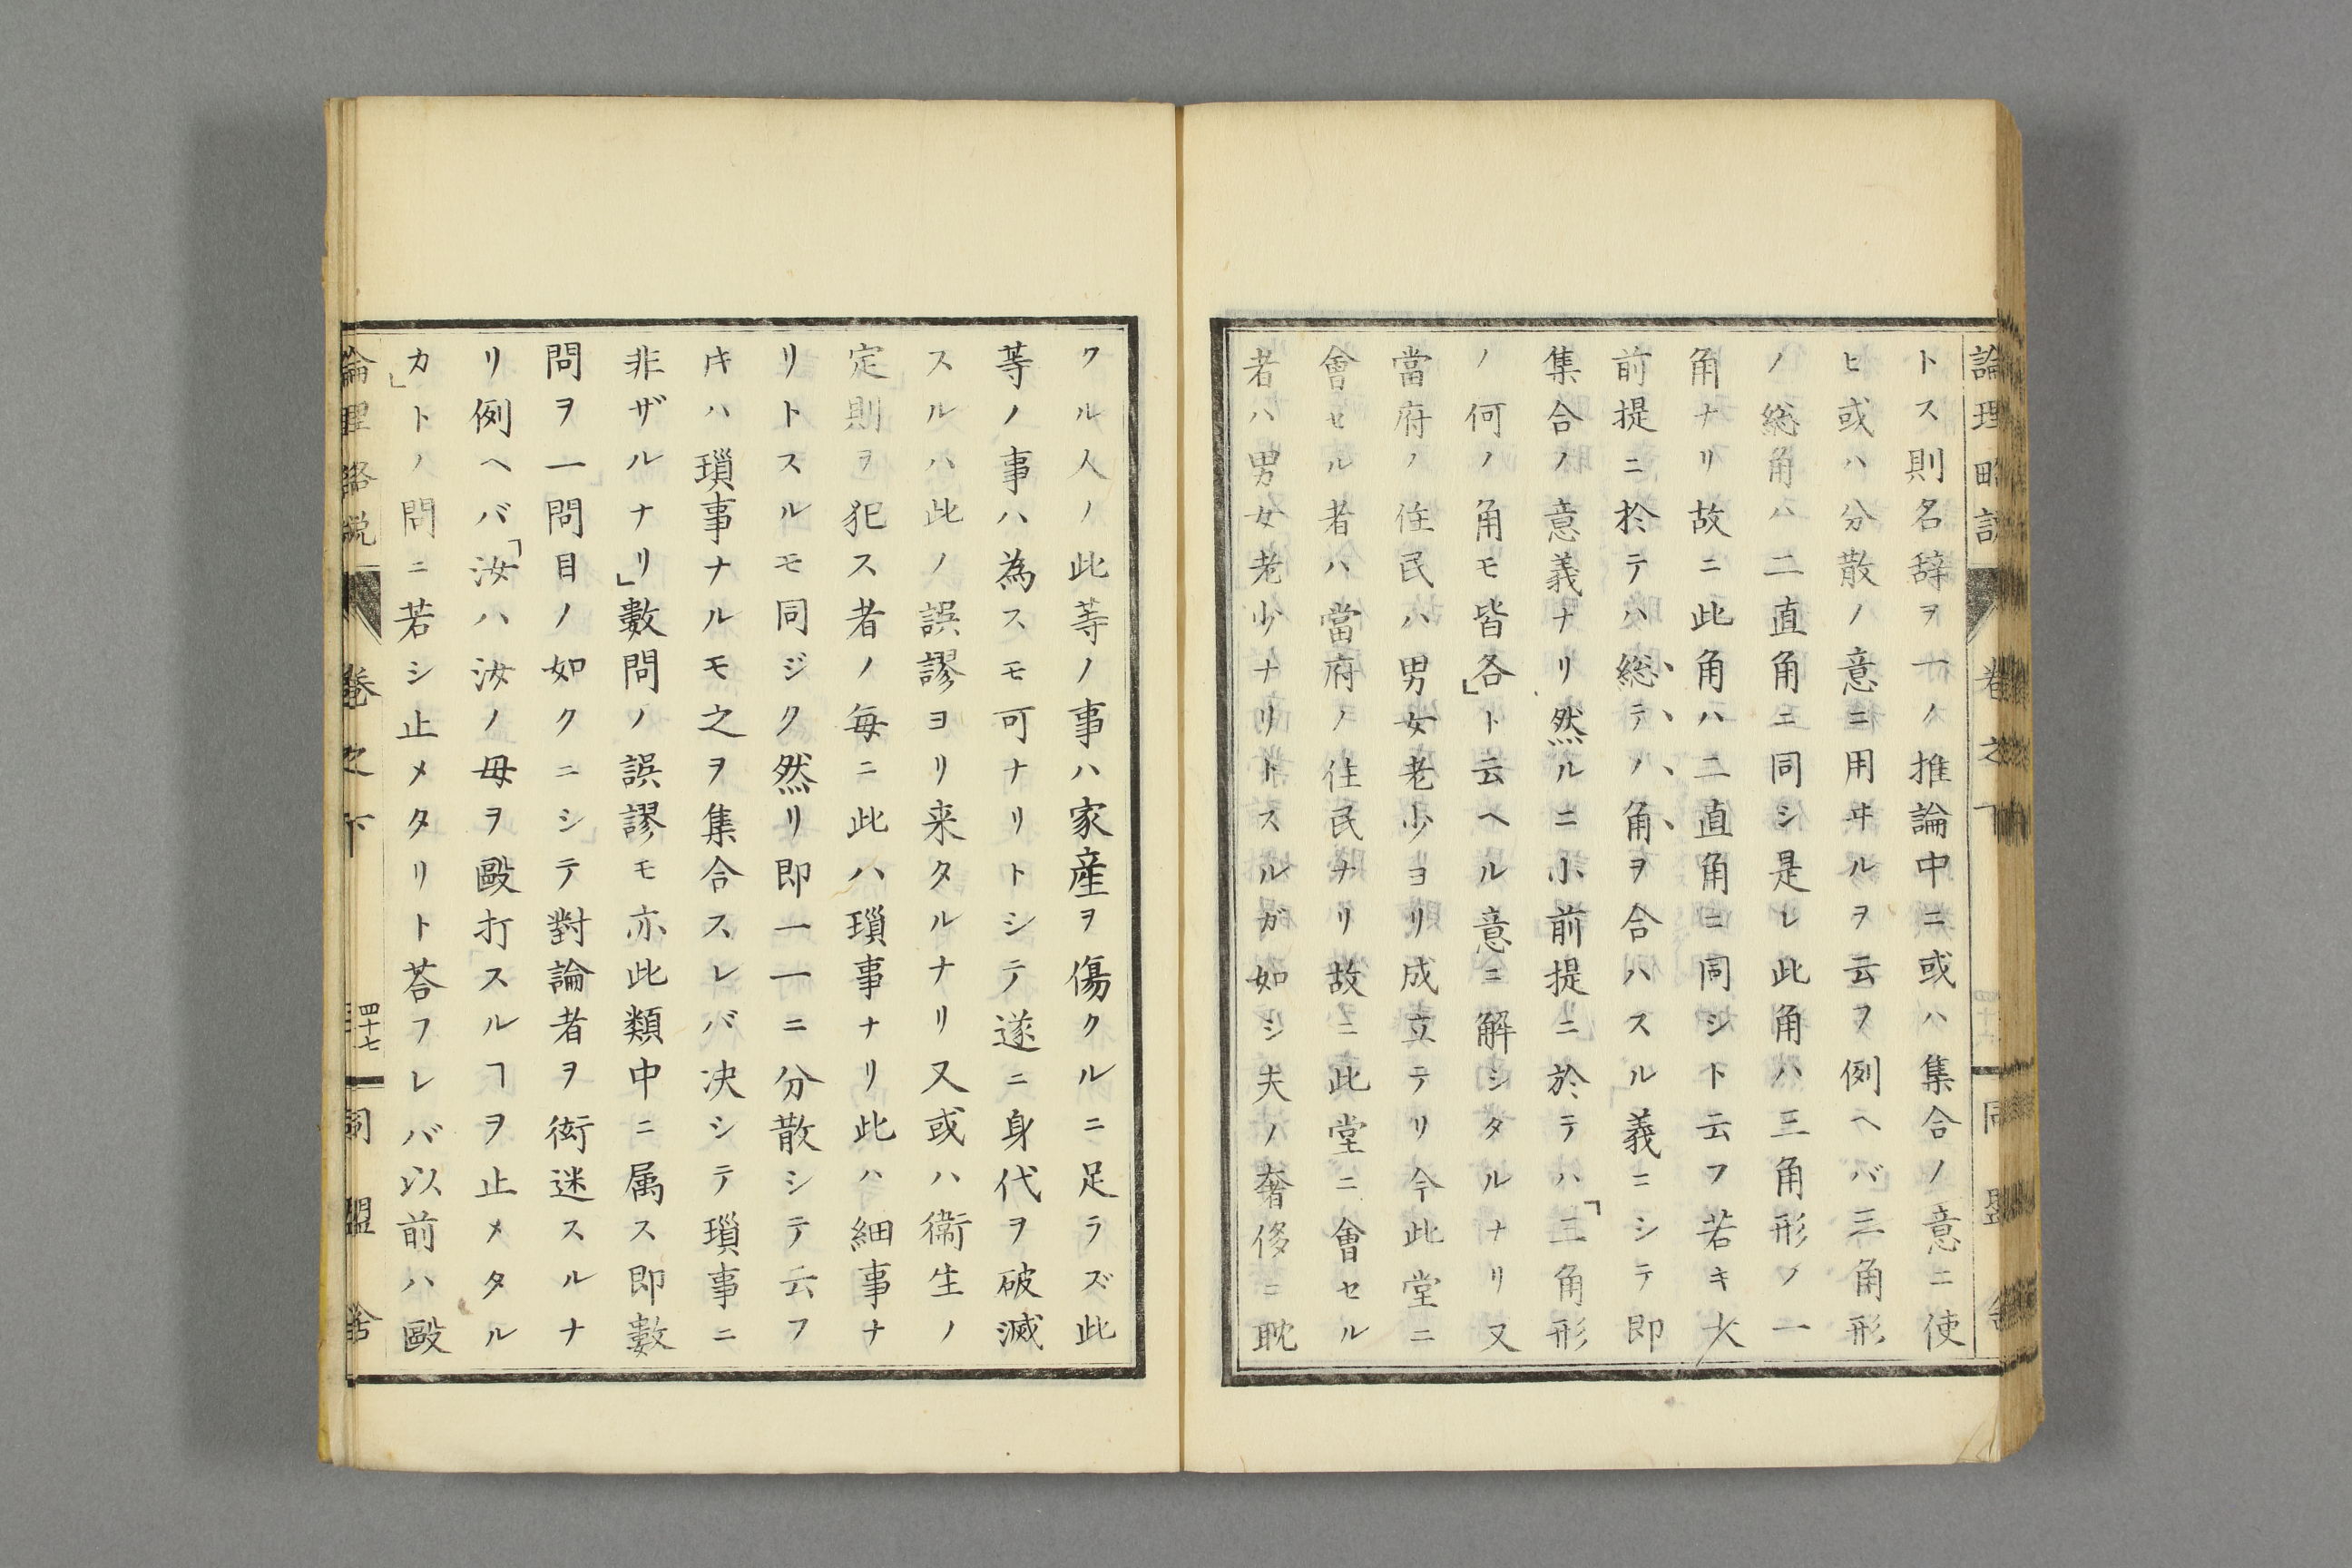 論理略説 卷之下 同盟舎
トス則名辞ヲ一ノ推論中ニ或ハ集合ノ意ニ使
ヒ或ハ分散ノ意ニ用ヰルヲ云フ例ヘバ三角形
ノ総角ハ二直角ニ同シ是レ此角ハ三角形ノ一
角ナリ故ニ此角ハ二直角ニ同シト云フ若キ大
前提ニ於テハ総テノ角ヲ合ハスル義ニシテ即
集合ノ意義ナリ然ルニ小前提ニ於テハ「三角形
ノ何ノ角モ皆各」ト云ヘル意ニ解シタルナリ又
當府ノ住民ハ男女老少ヨリ成立テリ今此堂ニ
會セル者ハ當府ノ住民ナリ故ニ此堂ニ會セル
者ハ男女老少ナリトスルガ如シ夫ノ奢侈ニ耽
クル人ノ此等ノ事ハ家産ヲ傷クルニ足ラズ此
等ノ事ハ為スモ可ナリトシテ遂ニ身代ヲ破滅
スルハ此ノ誤謬ヨリ来タルナリ又或ハ衞生ノ
定則ヲ犯ス者ノ毎ニ此ハ瑣事ナリ此ハ細事ナ
リトスルモ同ジク然リ即一一ニ分散シテ云フ
キハ瑣事ナルモ之ヲ集合スレバ决シテ瑣事ニ
非ザルナリ」數問ノ誤謬モ亦此類中ニ属ス即數
問ヲ一問目ノ如クニシテ對論者ヲ衒迷スルナ
リ例ヘバ「汝ハ汝ノ母ヲ毆打スルヿヲ止メタル
カ」トノ問ニ若シ止メタリト荅フレバ以前ハ毆
論理略説 卷之下 四十七 同盟舎